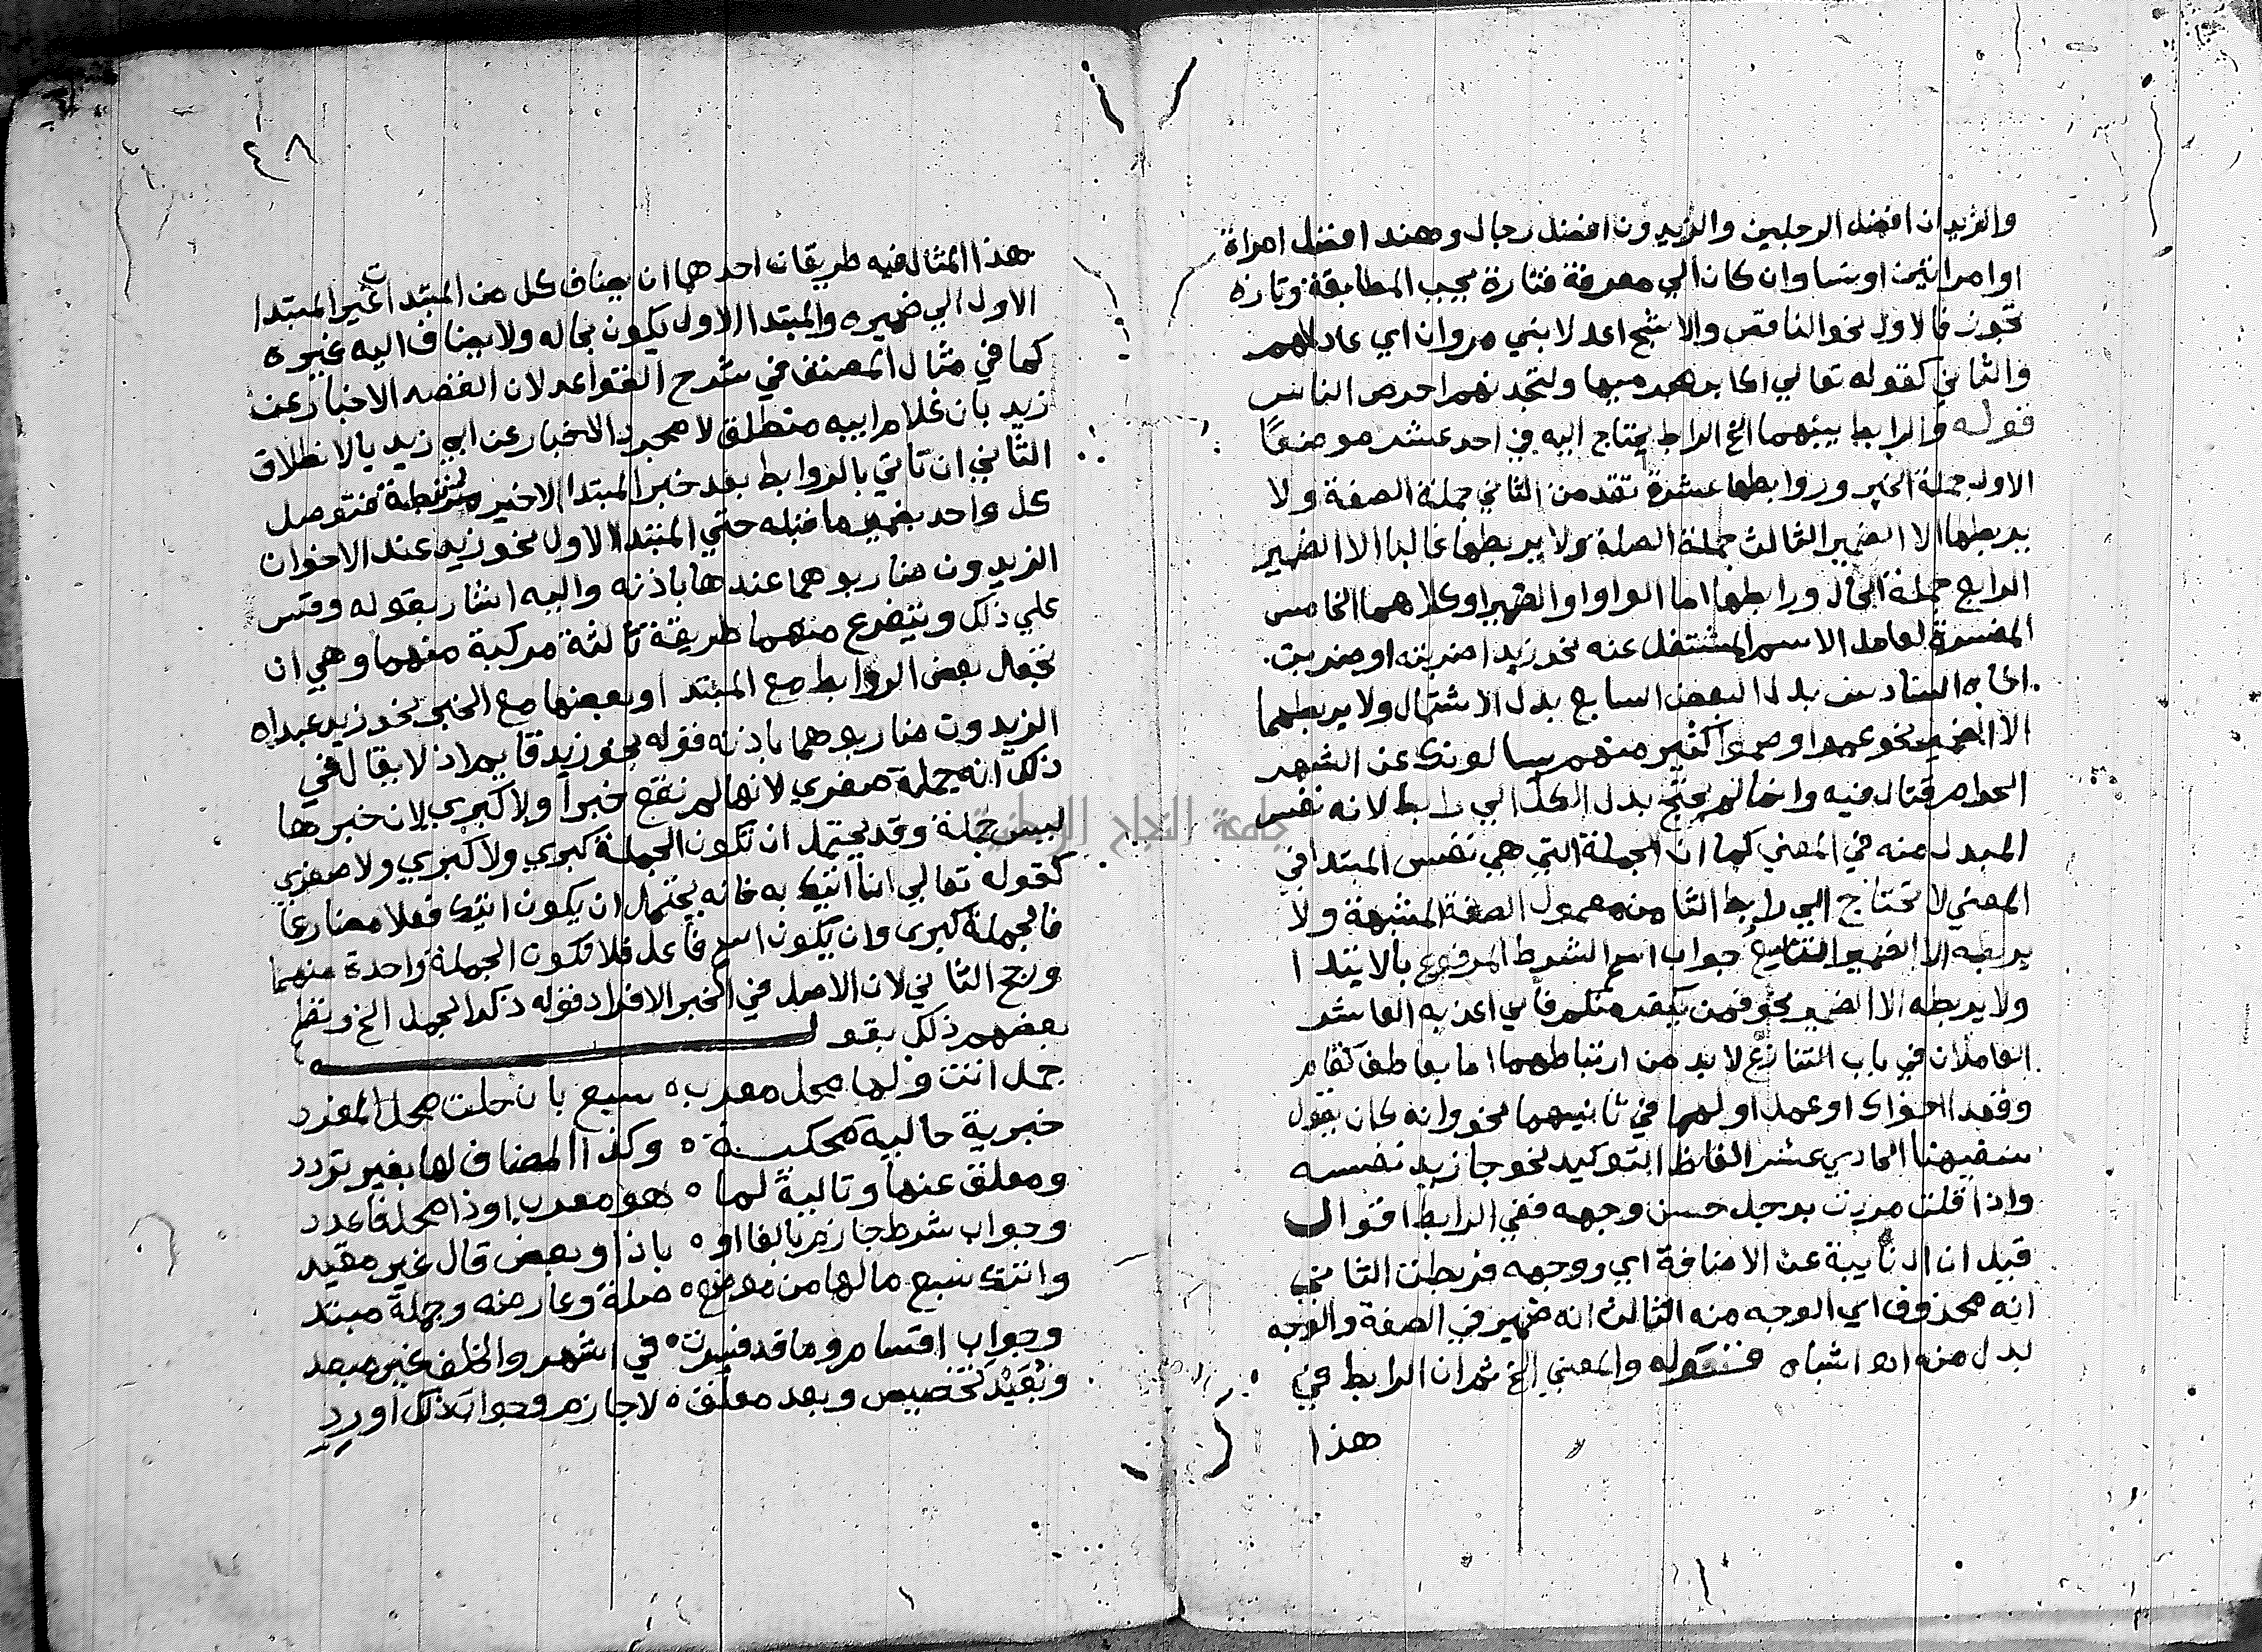 والزيدان افضل الرجلين والزيدون افضل رجال وهند افضل امراة
او امراتين او نسا وان كان الي معرفة فتارة يجب المطابقة وتارة
تجوز فالاول نحو الناقص والاشج اعدلا بني مروان اي عادلاهم
والثاني كقوله تعالي اكابر مجرميها ولتجدنهم احرص الناس
قوله والرابط بينهما الخ الرابط يحتاج اليه في احد عشر موضعًا
الاول جملة الخبر وروابطها عشرة تقدمن الثاني جملة الصفة ولا
يربطها الا الضمير الثالث جملة الصلة ولا يربطها غالبا الا الضمير
الرابع جملة الحال ورابطها اما الواو او الضمير او كلاهما الخامس
المفسرة لعامل الاسم المشتغل عنه نحو زيدا ضربته او ضربت
اخاه السادس بدل البعض السابع بدل الاشتمال ولا يربطهما
الا الضمير نحو عموا وصموا كثير منهم يسالونك عن الشهر
الحرام قتال فيه وانما لم يحتج بدل الكل الي رابط لانه نفس
المبدل منه في المعني كما ان الجملة التي هي نفس المبتدا في
المعني لا تحتاج الي رابط الثامن معمول الصفة المشبهة ولا
يربطه الا الضمير التاسع جواب اسم الشرط المرفوع بالابتدا
ولا يربطه الا الضمير نحو فمن يكفر منكم فاني اعذبه العاشر
العاملان في باب التنازع لابد من ارتباطهما اما بعاطف كقام
وقعد اخواك او عمل اولهما في ثانيهما نحو وانه كان يقول
سفيهنا الحادي عشر الفاظ التوكيد نحو جا زيد نفسه
واذا قلت مررت برجل حسن وجهه ففي الرابط اقوال
قيل ان ال نايبة عن الاضافة اي ووجهه فربطت الثاني
انه محذوف اي الوجه منه الثالث انه ضمير في الصفة والوجه
بدل منه اهـ اشباه قوله والمعني الخ ثم ان الرابط في
هذا
٤٨
هذا المثال فيه طريقان احدهما ان يضاف كل من المبتدات غير المبتدا
الاول الي ضميره والمبتدا الاول يكون بحاله ولا يضاف اليه غيره
كما في مثال المصنف في شرح القواعد لان القصد الاخبار عن
زيد بان غلام ابيه منطلق لا مجرد الاخبار عن ابي زيد بالانطلاق
الثاني ان تاتي بالروابط بعد خبر المبتدا الاخير فتوصل
كل واحد بضمير ما قبله حتي المبتدا الاول نحو زيد عند الاخوان
الزيدون ضاربوهما عندها باذنه واليه اشار بقوله وقس
علي ذلك ويتفرع منهما طريقة ثالثة مركبة منهما وهي ان
تجعل بعض الروابط مع المبتدا وبعضها مع الخبر نحو زيد عبداه
الزيدون ضاربوهما باذنه قوله نحو زيد قايم اذ لا يقال في
ذلك انه جملة صغري لانها لم تقع خبرا ولا كبري لان خبرها
ليس جملة وقد يحتمل ان تكون الجملة كبري ولا كبري ولا صغري
كقوله تعالي انا اتيك به فانه يحتمل ان يكون اتيك فعلا مضارعا
فالجملة كبري وان يكون اسم فاعل فلا تكون الجملة واحدة منهما
ورجح الثاني لان الاصل في الخبر الافراد قوله ذكر الجمل الخ ونظم
بعضهم ذلك بقولـه
جمل اتت ولها محل معرب ه سبع بان حلت محل المفرد
خبرية حالية محكية ه وكذا المضاف لها بغير تردد
ومعلق عنها وتالية لما ه هو معرب او ذا محل فاعدد
وجواب شرط جازم بالفا او ه باذا وبعض قال غير مقيد
واتتك سبع ما لها من موضع ه صلة وعارضه وجملة مبتد
وجواب اقسام وما قد فسرت ه في اشهر والخلف غير مبعد
وبُعَيْدَ تخصيص وبعد معلق ه لا جازم وجواب ذلك اورد
جامعة النجاح الوطنية